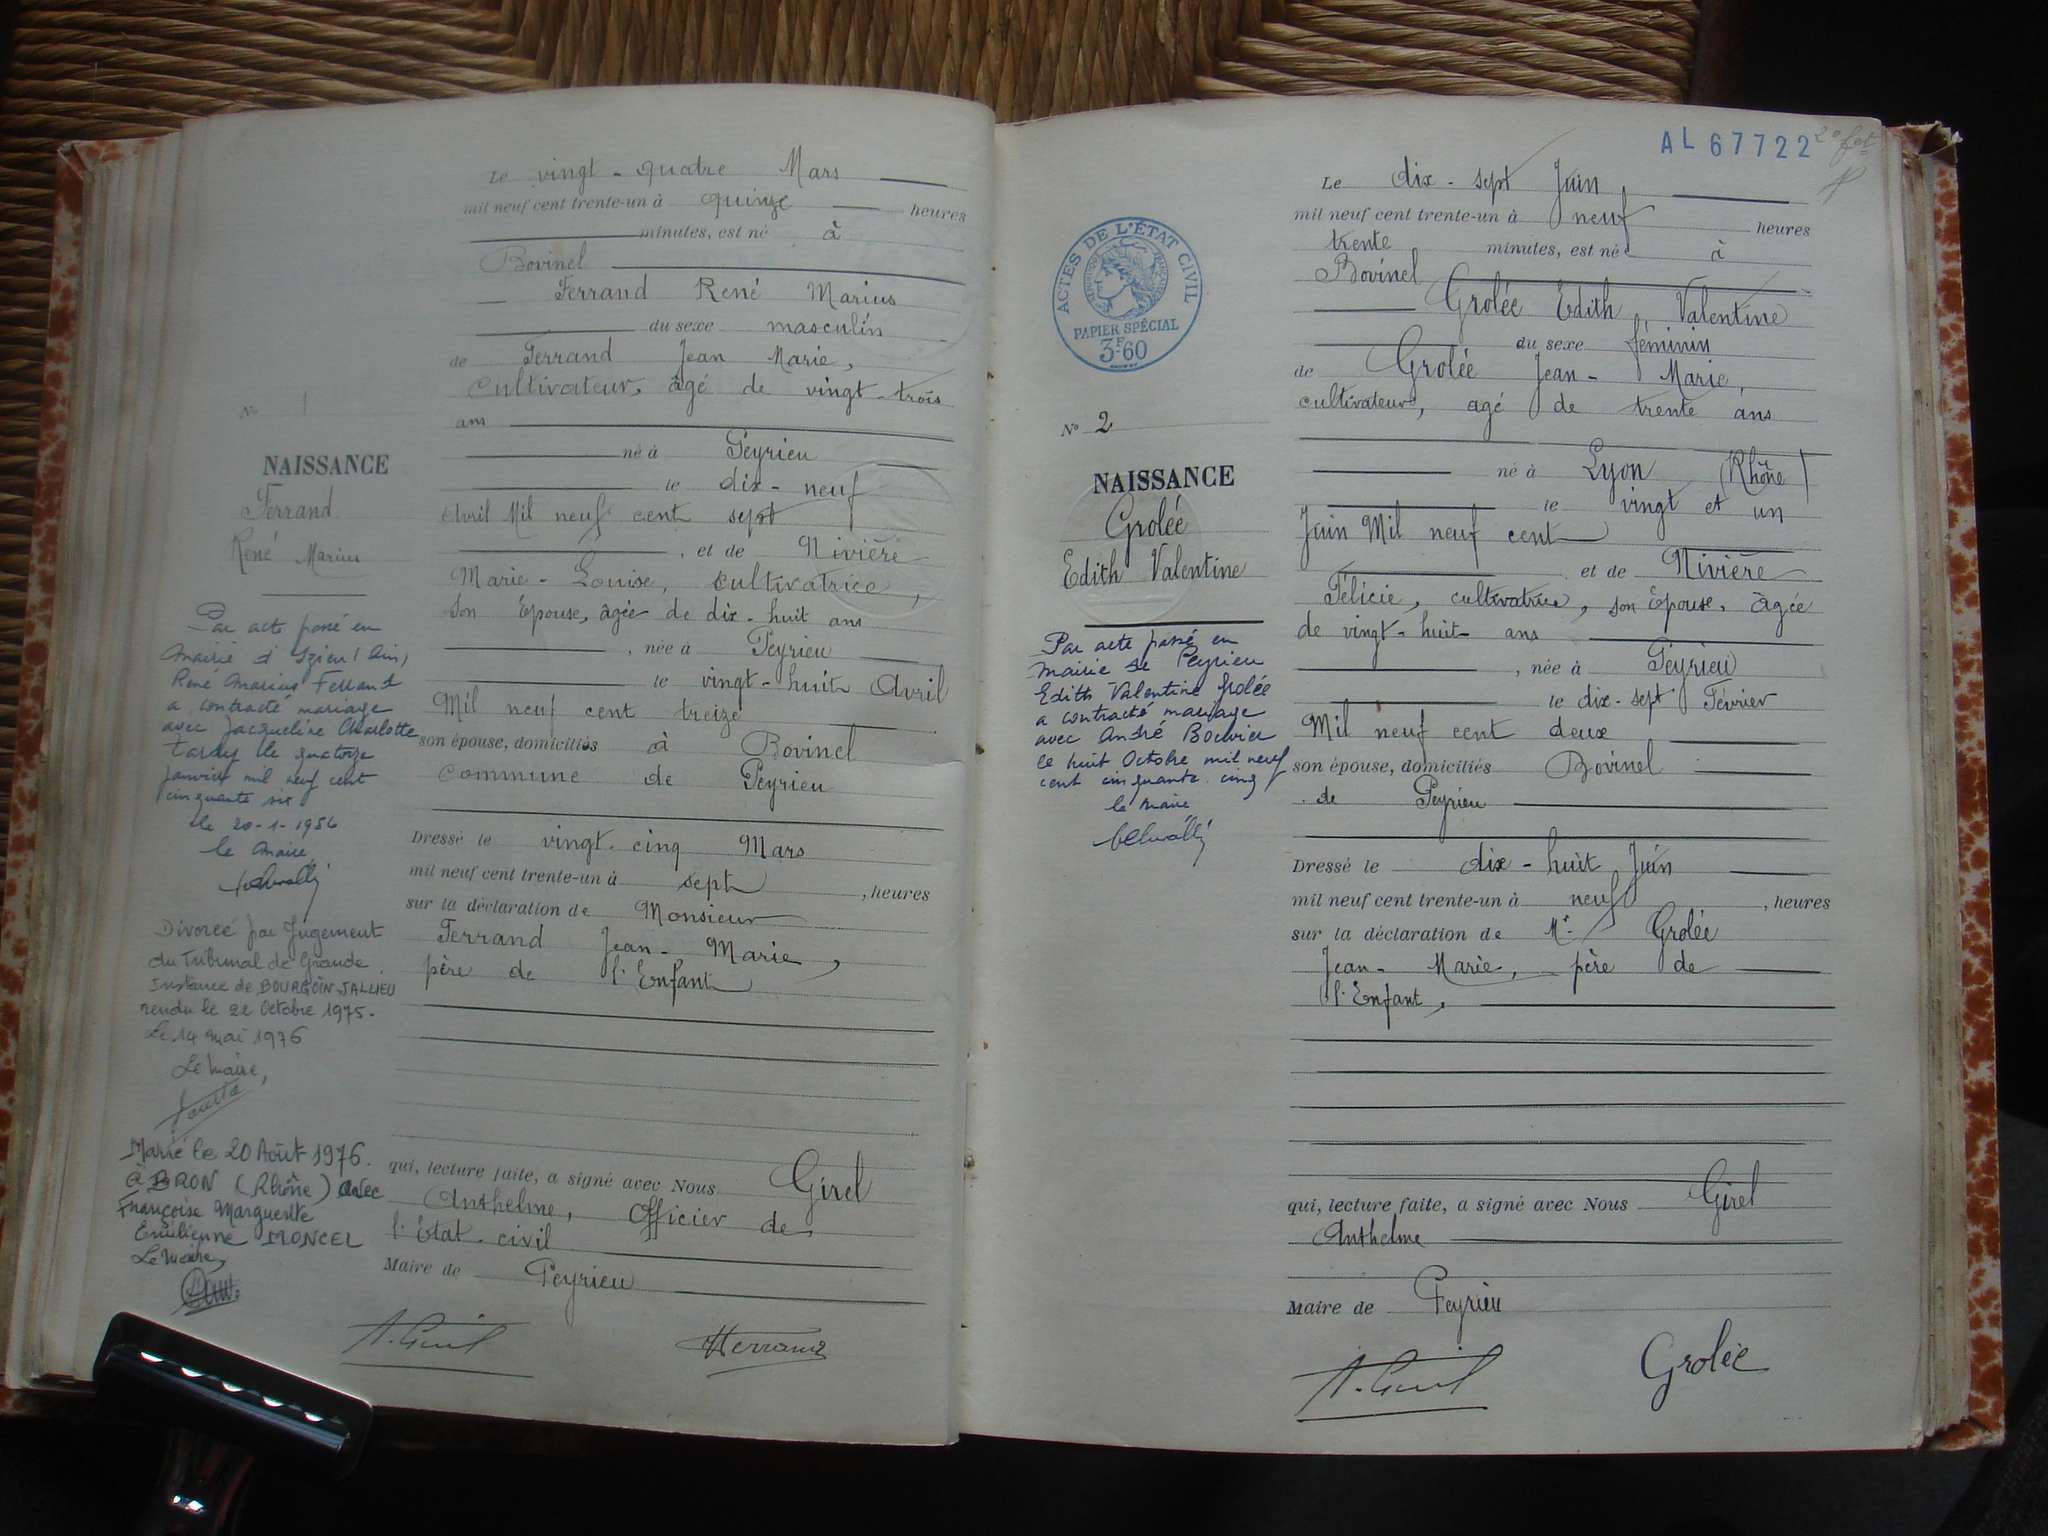 Le vingt-quatre Mars
mil neuf cent trente-un à quinze heures
minutes, est né à
Bovinel
Ferrand René Marius
du sexe masculin
de Ferrand Jean Marie,
Cultivateur, âgé de vingt-trois
ans
né à Peyrieu
le dix-neuf
Avril Mil neuf cent sept
, et de Nivière
Marie-Louise, cultivatrice,
son Epouse, âgée de dix-huit ans
, née à Peyrieu
le vingt-huit Avril
Mil neuf cent treize
son épouse, domiciliés à Bovinel
Commune de Peyrieu
Dressé le vingt-cinq Mars
mil neuf cent trente-un à sept, heures
sur la déclaration de Monsieur
Ferrand Jean-Marie,
père de l'Enfant
qui, lecture faite, a signé avec Nous Girel
Anthelme, Officier de
l'état-civil
Maire de Peyrieu
N° 1
NAISSANCE
Ferrand
René Marius
Par acte passé en
mairie d'Izieu (Ain)
René Marius Ferrand
a contracté mariage
avec Jacqueline Charlotte
Tardy le quatorze
janvier mil neuf cent
cinquante six
le 20-1-1956
le Maire,
Divorcé par Jugement
du Tribunal de Grande
Instance de BOURGOIN-JALLIEU
rendu le 22 Octobre 1975.
Le 14 mai 1976
Le Maire,
Marié le 20 Août 1976.
à BRON (Rhône) avec
Françoise Marguerite
Emilienne MONCEL
Le Maire,
A. Girel
Ferrand
AL 67722
Le dix-sept Juin,
mil neuf cent trente-un à neuf heures
trente minutes, est née à
Bovinel
Grolée Edith Valentine
du sexe féminin
de Grolée Jean-Marie,
cultivateur, agé de trente ans
né à Lyon (Rhône)
le vingt et un
Juin Mil neuf cent
et de Nivière
Félicie, cultivatrice, son Epouse, âgée
de vingt-huit ans
, née à Peyrieu
le dix-sept Février
Mil neuf cent deux
son épouse, domiciliés Bovinel
de Peyrieu
Dressé le dix-huit Juin
mil neuf cent trente-un à neuf, heures
sur la déclaration de Mr. Grolée
Jean-Marie, père de
l'Enfant,
qui, lecture faite, a signé avec Nous Girel
Anthelme
Maire de Peyrieu
ACTES DE L'ÉTAT CIVIL
PAPIER SPÉCIAL
3F60
N° 2
NAISSANCE
Grolée
Edith Valentine
Par acte passé en
mairie de Peyrieu
Edith Valentine Grolée
a contracté mariage
avec André Bouvier
le huit Octobre mil neuf
cent cinquante cinq
le Maire
A. Girel
Grolée